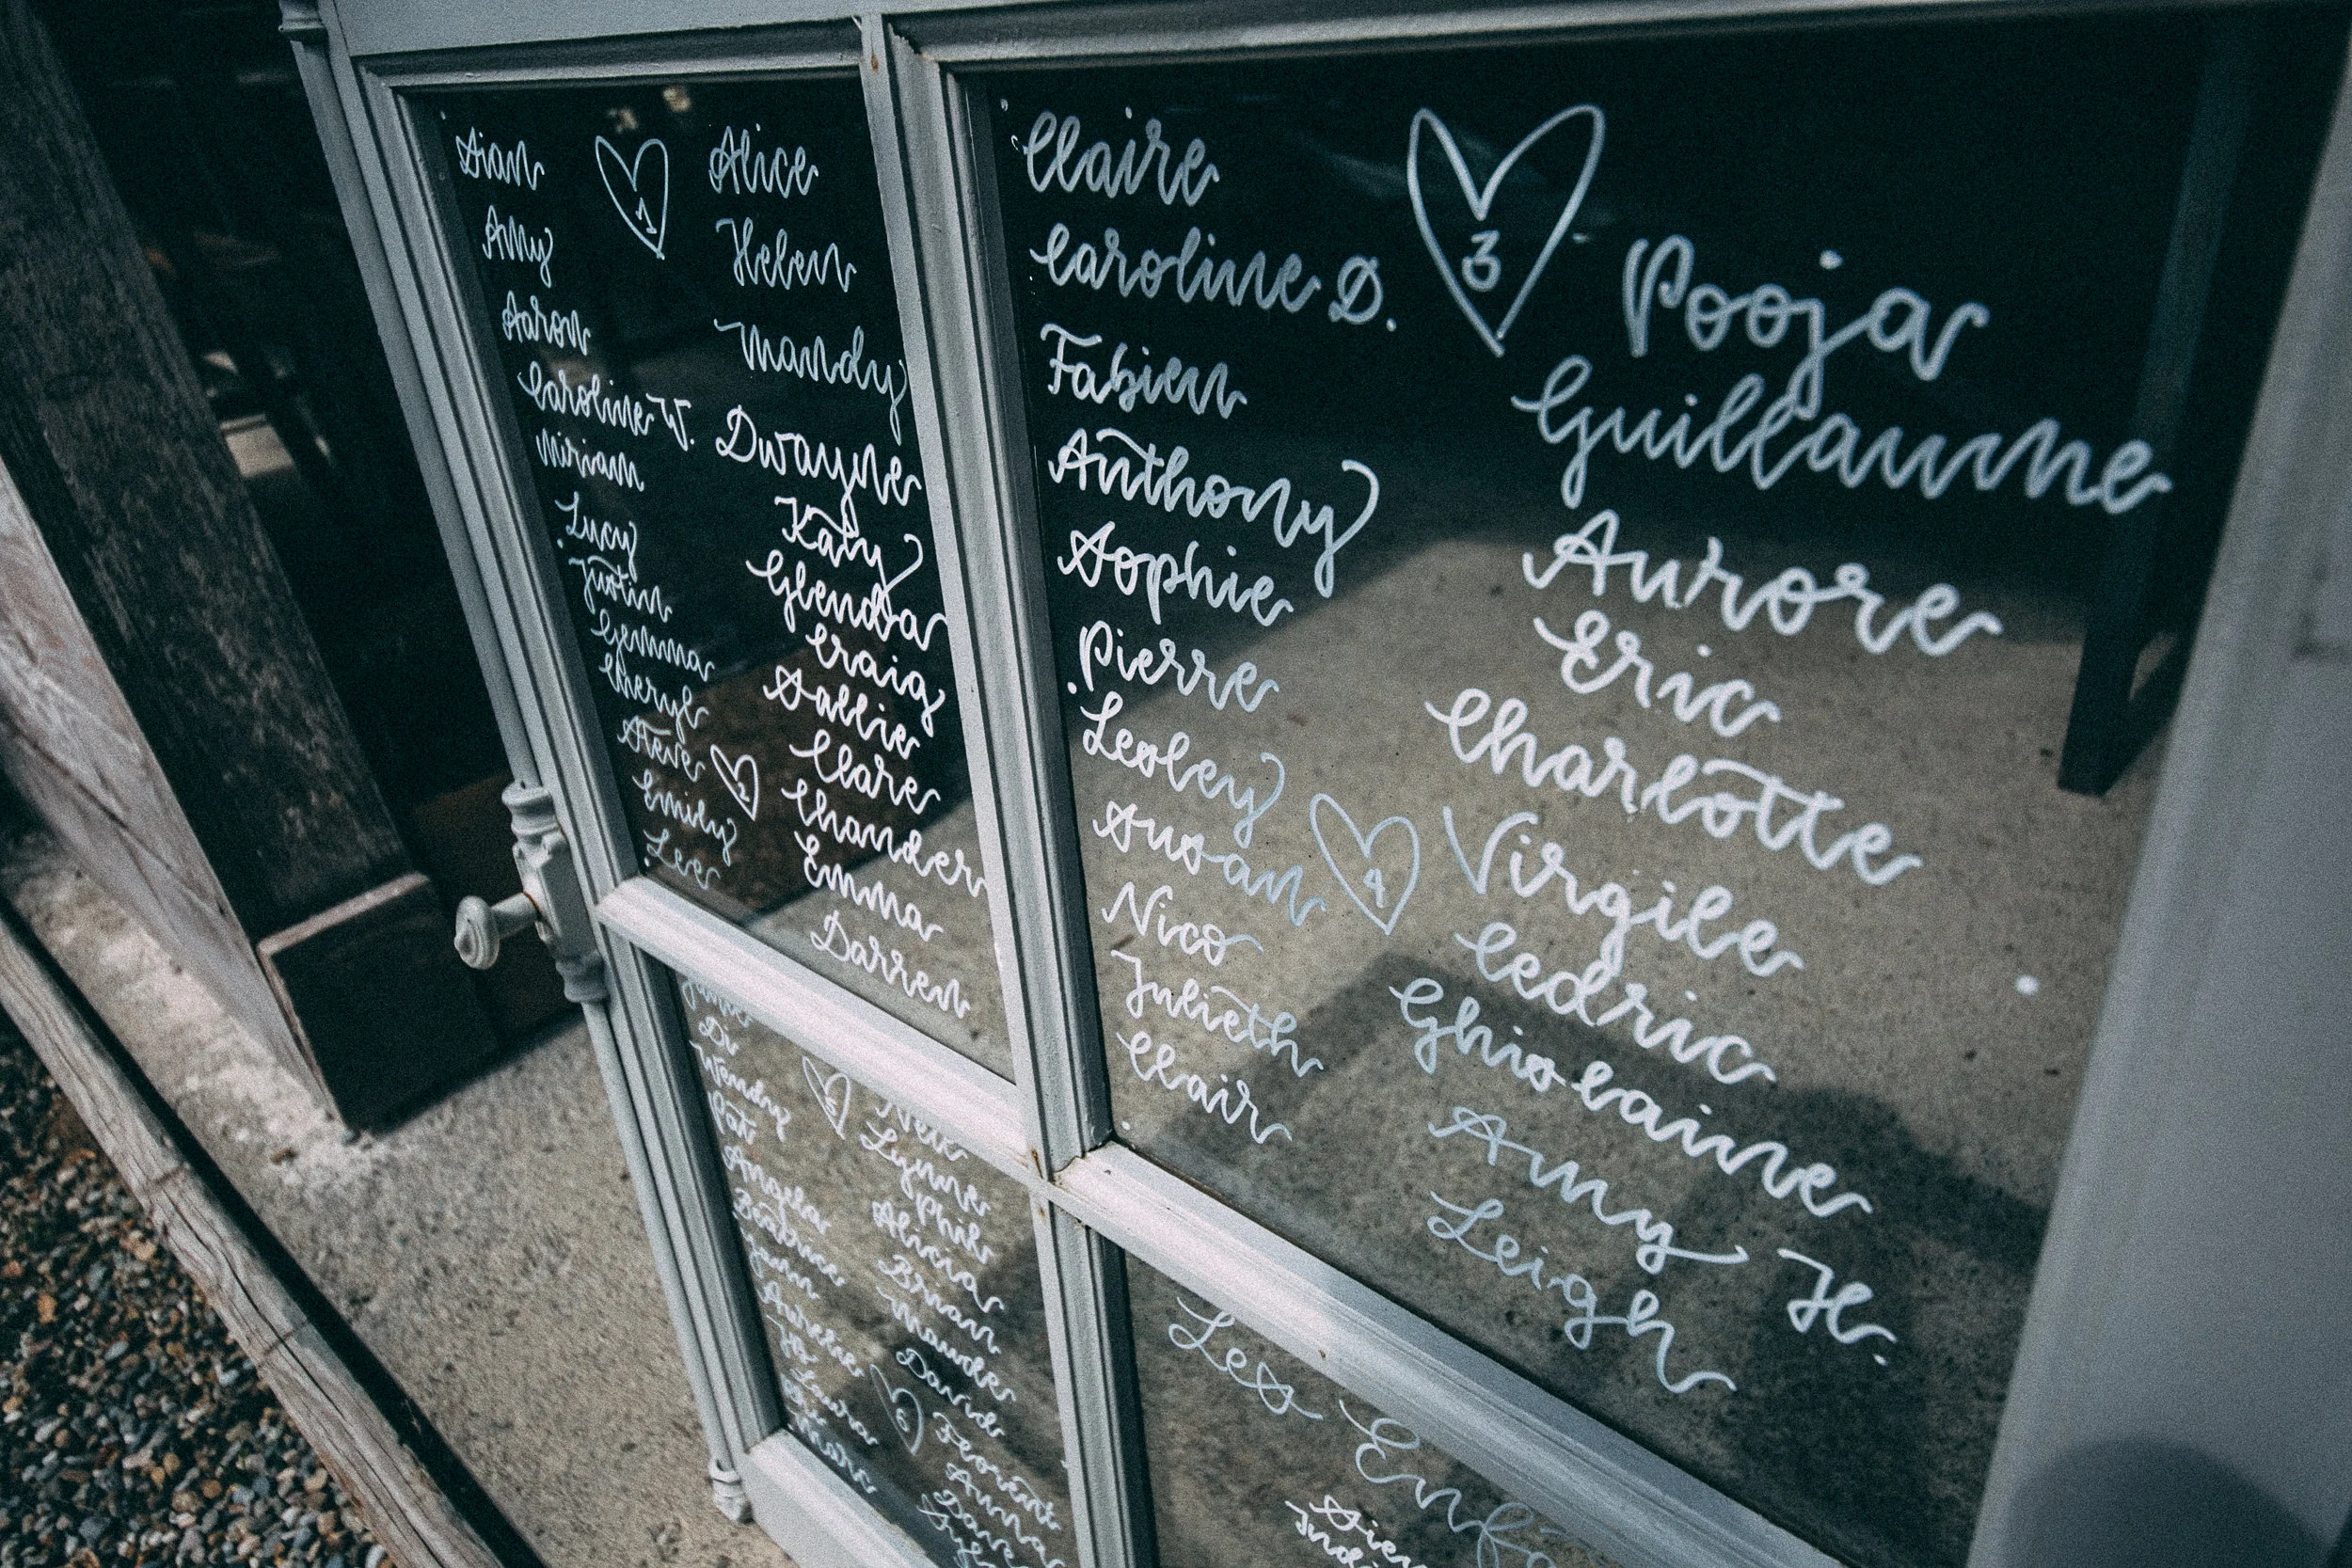 Sian
Amy
Aaron
Caroline W.
Miriam
Lucy
Justin
Gemma
Cheryl
Steve
Emily
Lee
1
2
Alice
Helen
Mandy
Dwayne
Katy
Glenda
Craig
Sallie
Clare
Chander
Emma
Darren
Claire
Caroline D.
Fabien
Anthony
Sophie
Pierre
Lesley
Susan
Nico
Julieth
Clair
3
4
Pooja
Guillaume
Aurore
Eric
Charlotte
Virgile
Cedric
Ghislaine
Amy H.
Leigh
Di
Wendy
Pat
Angela
Beatrice
Yann
Aurelie
Jo
Laura
Marc
5
6
Lynne
Phil
Alicia
Brian
Maude
David
Florent
Anna
Dave
Les Enfa